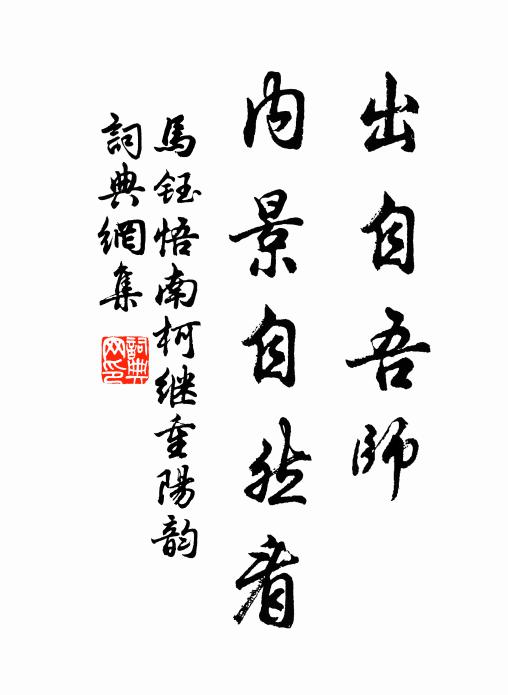 出自吾師
内景自然看
馬鈺悟南柯继重陽韵
詞典網集
詞典網印